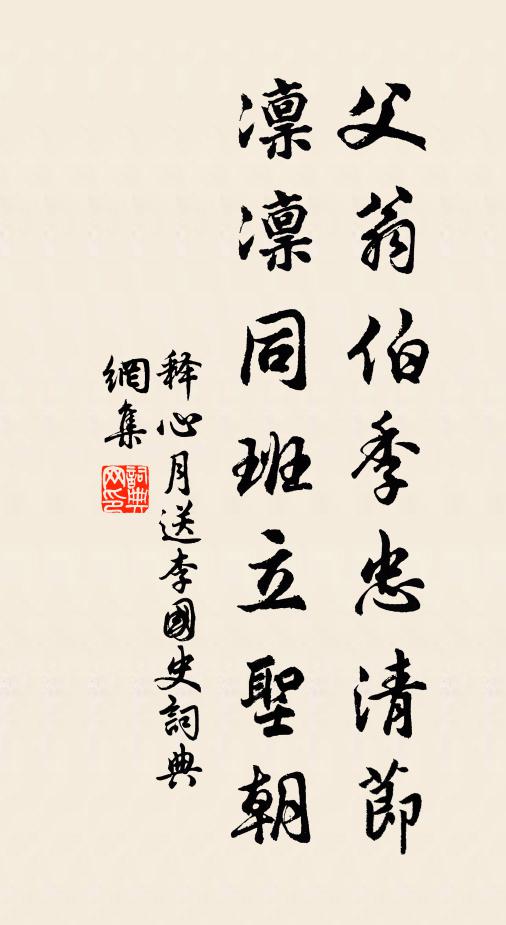 父翁伯季忠清節
凜凜同班立聖朝
释心月送李國史詞典
網集
詞典網印